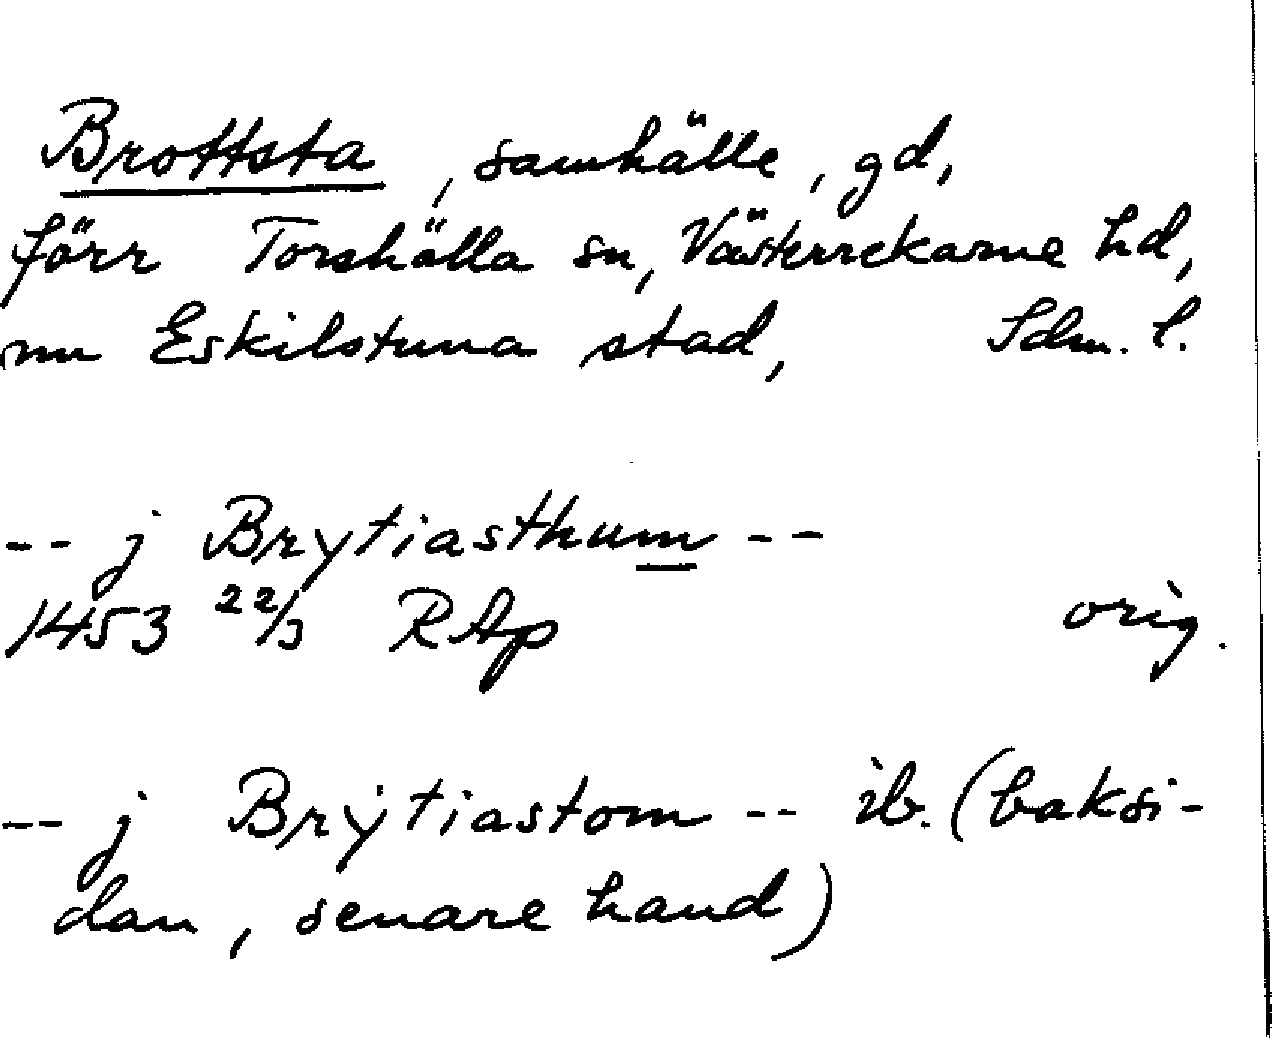 Brottsta, samhälle, gd,
förr Torshälla sn, Västerrekarne hd,
nu Eskilstuna stad, Sdm. l.
-- j Brytiasthum --
1453 22/3 RAp orig.
-- j Brẏtiastom -- ib. (baksi-
dan, senare hand)